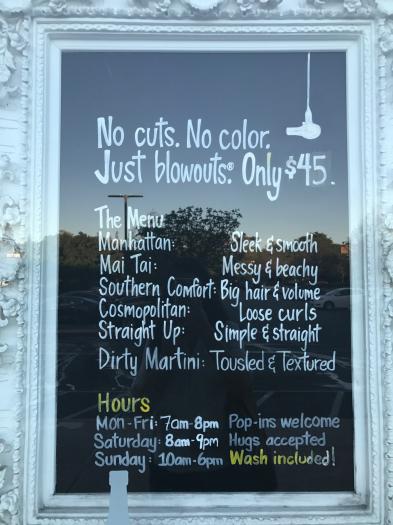 No cuts. No color.
Just blowouts.® Only $45.
The Menu
Manhattan: Sleek & smooth
Mai Tai: Messy & beachy
Southern Comfort: Big hair & volume
Cosmopolitan: Loose curls
Straight Up: Simple & straight
Dirty Martini: Tousled & Textured
Hours
Mon - Fri: 7am-8pm Pop-ins welcome
Saturday: 8am-9pm Hugs accepted
Sunday: 10am-6pm Wash included!